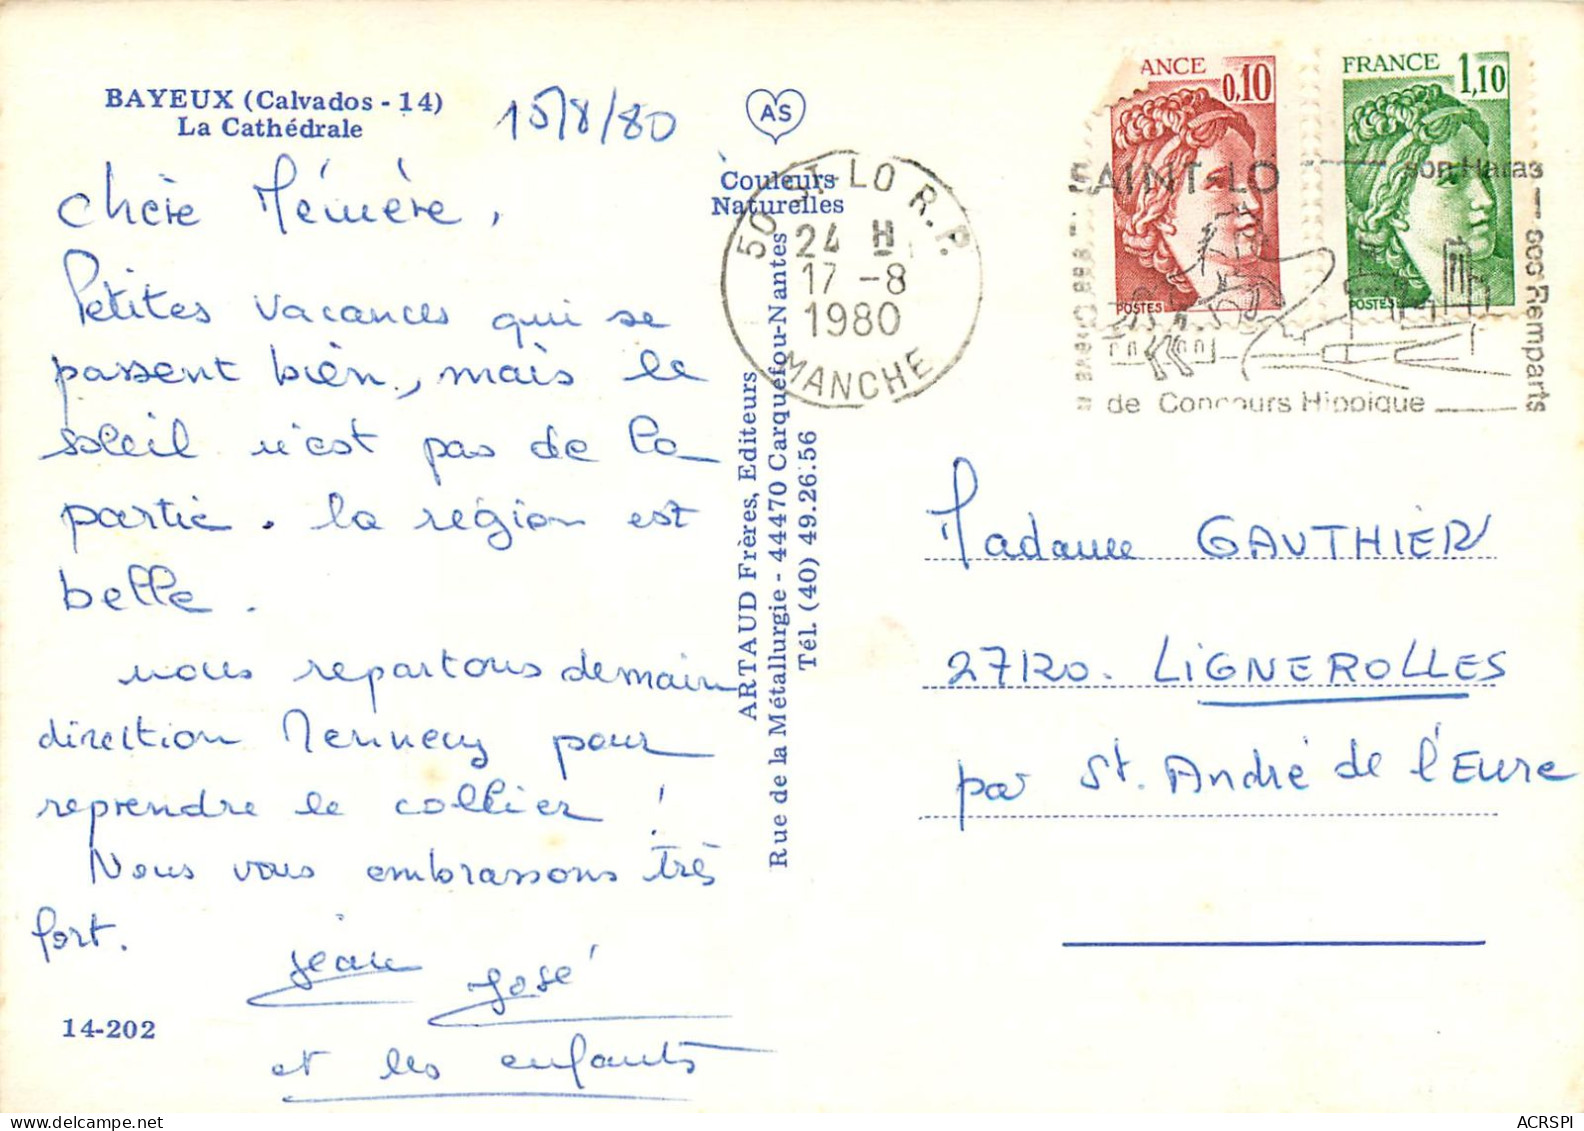 BAYEUX (Calvados - 14)
La Cathédrale
15/8/80
Chère Mémère,
Petites vacances qui se
passent bien, mais le
soleil n'est pas de la
partie. la région est
belle.
nous repartons demain
direction Mennecy pour
reprendre le collier !
Nous vous embrassons très
fort.
jean José
et les enfants
14-202
AS
Couleurs
Naturelles
ARTAUD Frères, Editeurs
Rue de la Métallurgie - 44470 Carquefou-Nantes
Tél. (40) 49.26.56
50 ST-LO R.P.
24 H
17 -8
1980
MANCHE
ANCE
0,10
POSTES
FRANCE
1,10
POSTES
SAINT-LO
son Haras
ses Remparts
de Concours Hippique
Madame GAUTHIER
27120. LIGNEROLLES
par St. André de l'Eure
delcampe.net
ACRSPI